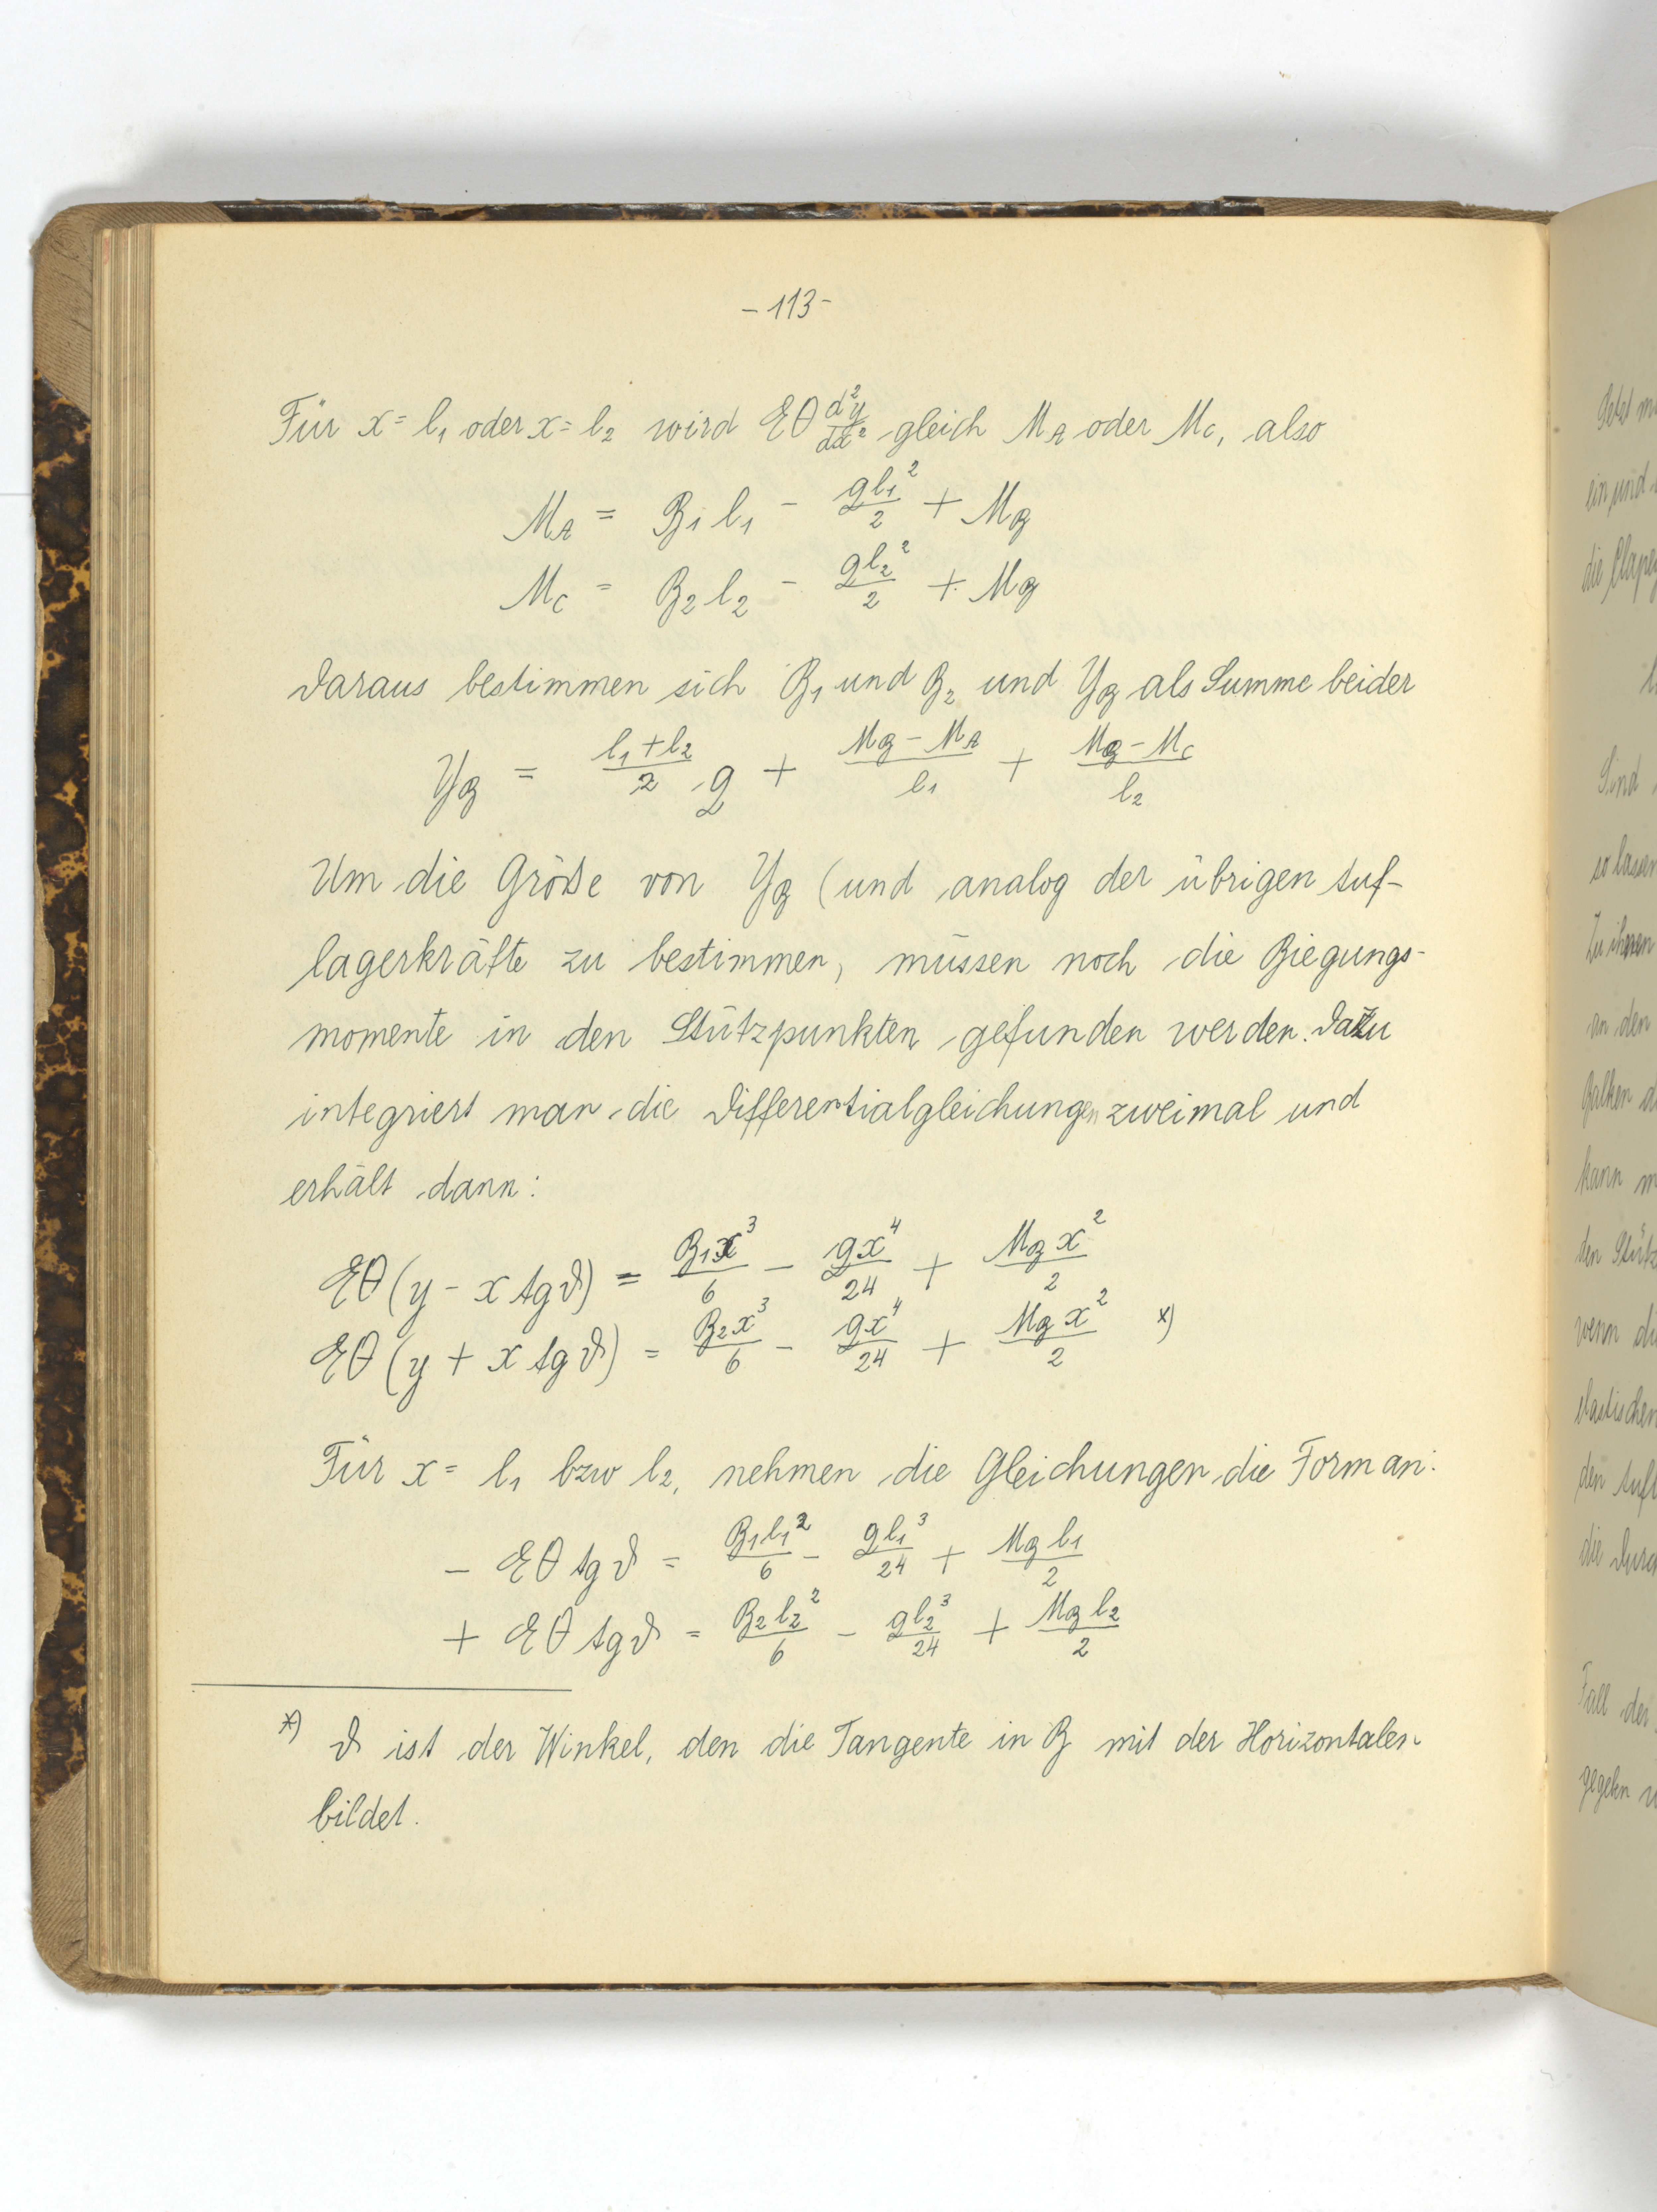 - 113 -
Für x = l₁ oder x = l₂ wird EΘ d²y/dx² gleich M_A oder M_C, also
M_A = B₁ l₁ - gl₁²/2 + M_B
M_C = B₂ l₂ - gl₂²/2 + M_B
Daraus bestimmen sich B₁ und B₂ und Y_B als Summe beider
Y_B = (l₁ + l₂)/2 g + (M_B - M_A)/l₁ + (M_B - M_C)/l₂
Um die Größe von Y_B (und analog der übrigen Auf-
lagerkräfte zu bestimmen, müssen noch die Biegungs-
momente in den Stützpunkten gefunden werden. Dazu
integriert man die Differentialgleichungen zweimal und
erhält dann:
EΘ (y - x tg ϑ) = B₁x³/6 - gx⁴/24 + M_B x²/2
EΘ (y + x tg ϑ) = B₂x³/6 - gx⁴/24 + M_B x²/2 *)
Für x = l₁ bzw l₂, nehmen die Gleichungen die Form an:
- EΘ tg ϑ = B₁l₁²/6 - gl₁³/24 + M_B l₁/2
+ EΘ tg ϑ = B₂l₂²/6 - gl₂³/24 + M_B l₂/2
*) ϑ ist der Winkel, den die Tangente in B mit der Horizontalen
bildet.